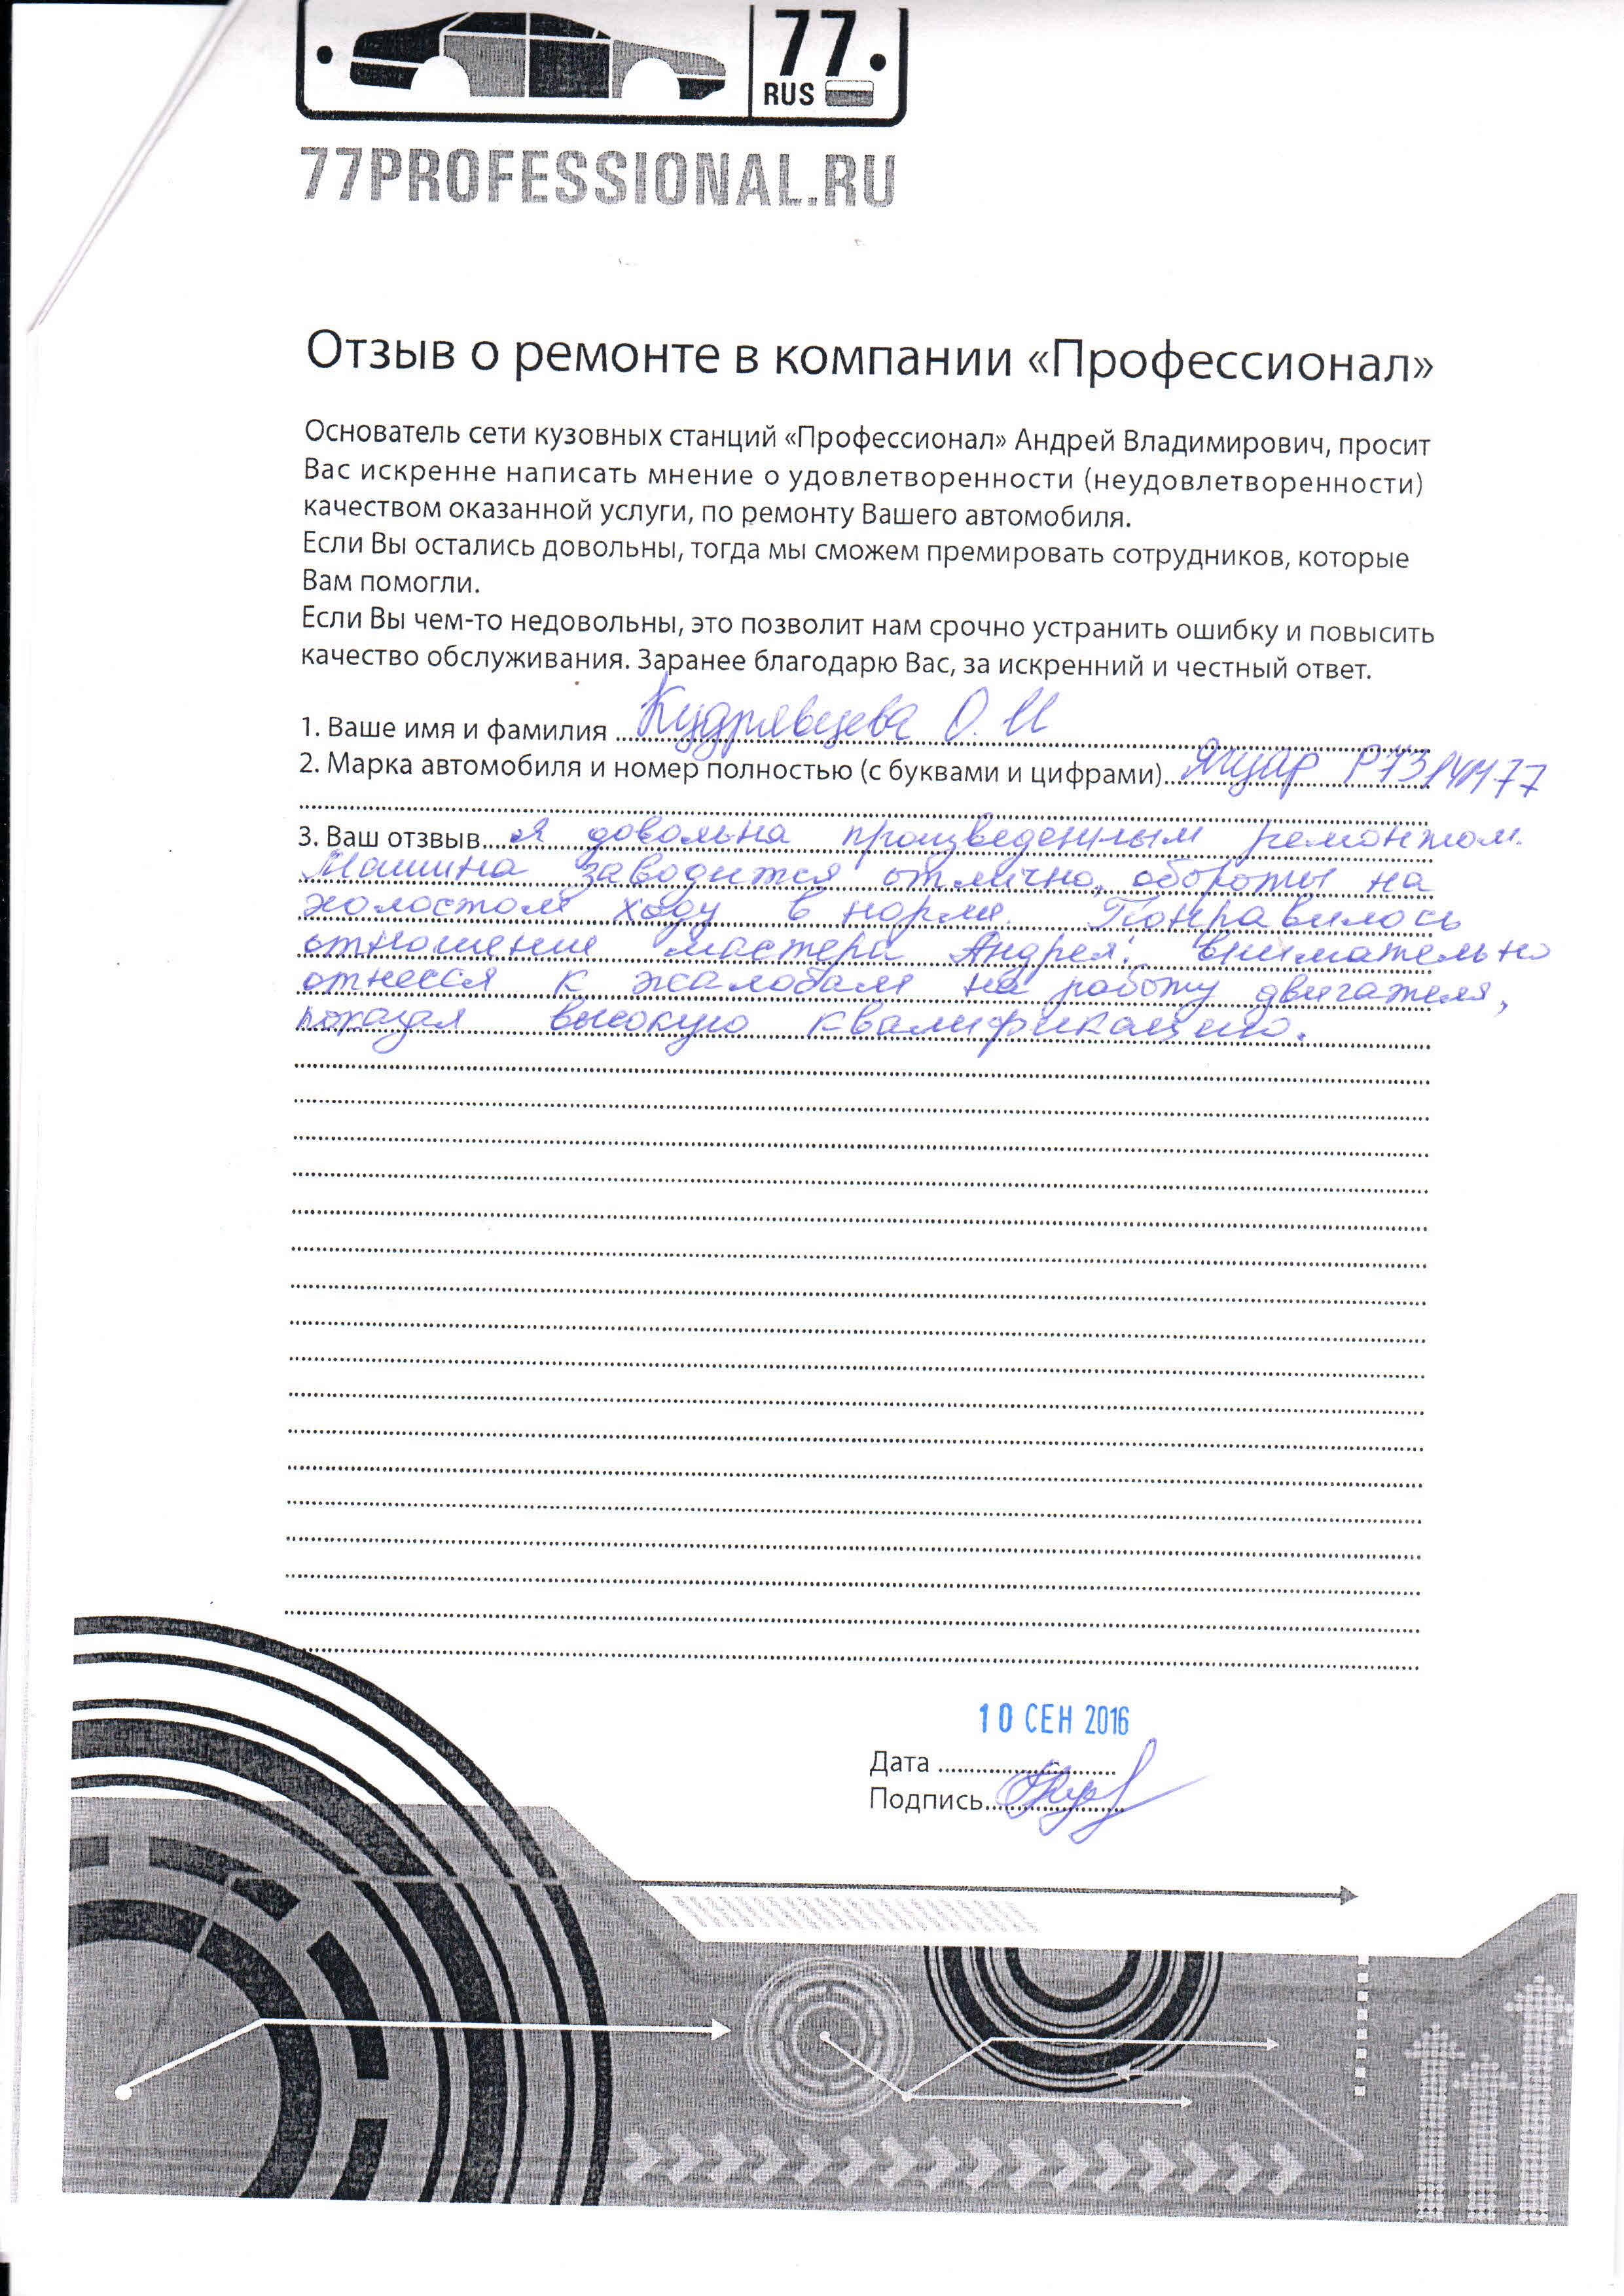 77
RUS
77PROFESSIONAL.RU
Отзыв о ремонте в компании «Профессионал»
Основатель сети кузовных станций «Профессионал» Андрей Владимирович, просит
Вас искренне написать мнение о удовлетворенности (неудовлетворенности)
качеством оказанной услуги, по ремонту Вашего автомобиля.
Если Вы остались довольны, тогда мы сможем премировать сотрудников, которые
Вам помогли.
Если Вы чем-то недовольны, это позволит нам срочно устранить ошибку и повысить
качество обслуживания. Заранее благодарю Вас, за искренний и честный ответ.
1. Ваше имя и фамилия Кудрявцева О. И
2. Марка автомобиля и номер полностью (с буквами и цифрами) Ягуар
3. Ваш отзвыв Я довольна произведенным ремонтом.
Машина заводится отлично, обороты на
холостом ходу в норме. Понравилось
отношение мастера Андрея: внимательно
отнесся к жалобам на работу двигателя,
показал высокую квалификацию.
10 СЕН 2016
Дата
Подпись